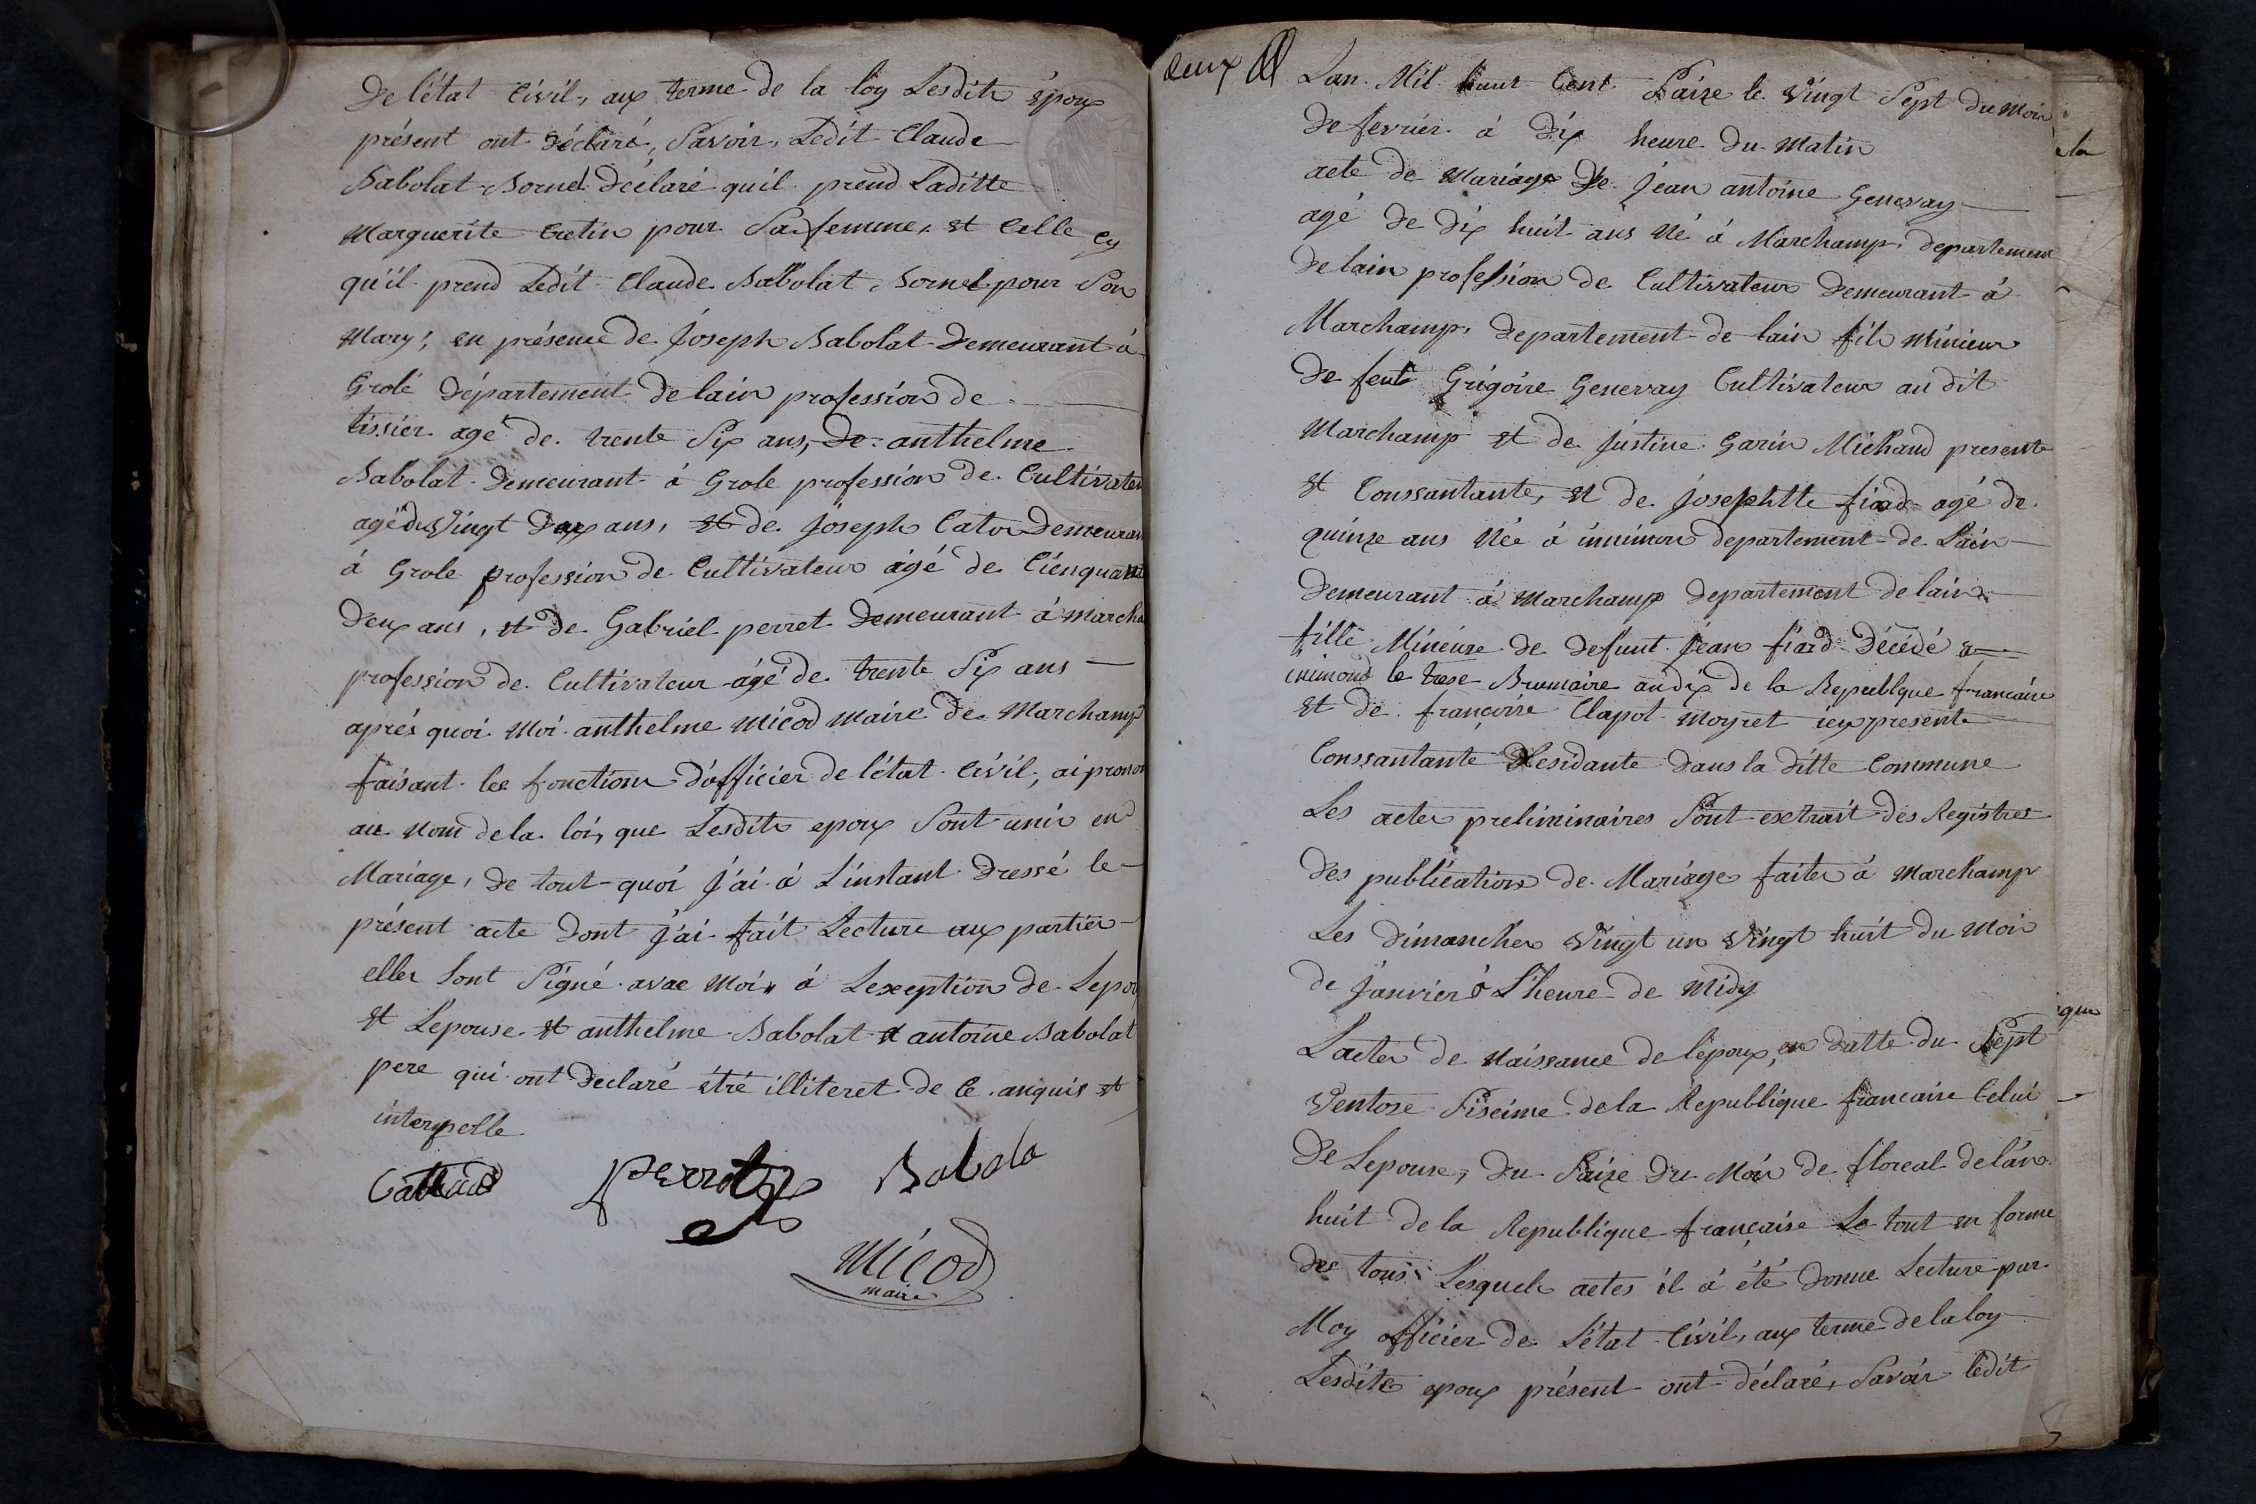 De l'état Civil, aux terme de la loy Lesdits époux
présent ont déclaré, Savoir, Ledit Claude
Babolat Bornel déclaré qu'il prend Laditte
Marguerite Cretin pour Sa femme, et Celle cy
qu'il prend Ledit Claude Babolat Bornel pour Son
Mary, en présence de Joseph Babolat Demeurant à
Grolé département de lain profession de
tissier agé de trente Six ans, De anthelme
Babolat Demeurant à Grole profession de Cultivateu
agé de Vingt Deux ans, et de Joseph Caton Demeuran
à Grole profession de Cultivateur agé de Cienquante
Deux ans, et de Gabriel perret Demeurant à marcha
profession de Cultivateur agé de trente Six ans
aprés quoi Moi anthelme Micod Maire de Marchamp
faisant les fonctions d'officier de l'état Civil, ai pronon
au Nom de la loi, que Lesdits epoux Sont unis en
Mariage, de tout quoi J'ai à Linstant Dressé le
présent acte Dont J'ai fait Lecture aux parties
elles Sont Signé avae Moi, à Lexception de Lepou
et Lepouse et anthelme Babolat et antoine Babolat
pere qui ont Declaré étré illiteret de Ce anquis et
interpelle
perret Babola
Micod
maire
deux
Lan Mil huut Cent Saize le Vingt Sept du Mois
De fevrier à Dix heure du Matin
acte de Mariage De Jean antoine Genevay
agé de Dix huit ans Né à Marchamp, departement
De lain profession de Cultivateur Demeurant à
Marchamp, departement de lain fils Mineur
De feut Grigoire Genevay Cultivateur au dit
Marchamp et de Justine Garin Michaud presente
et Conssantante, et de Josephtte fiard agé de
quinze ans Née à innimon departement de Lain
Demeurant à Marchamp departement de lain
fille Mineure de defunt Jean fiard Décédé a
inimond le trese Brumaire an dix de la Republque francaise
et de françoise Clapot Moyret icy presente
Conssantante Residante dans la ditte Commune
Les actes preliminaires Sont extrait des Registres
Des publications de Mariage faites à Marchamp
Les dimanches Vingt un Vingt huit du Mois
de Janvier à L'heure de Midy
L'actes de Naissance de l'époux, en datte du Sept
Ventose Siseime de la Republique francaise Celui
De Lepouse, du Saize du Mois de floreal de l'an
huit de la Republique française Le tout en forme
des tous Lesquels actes il à été donne Lecture par
Moy officier de L'état Civil, aux terme de la loy
Lesdits epoux présent ont déclaré, Savoir ledit